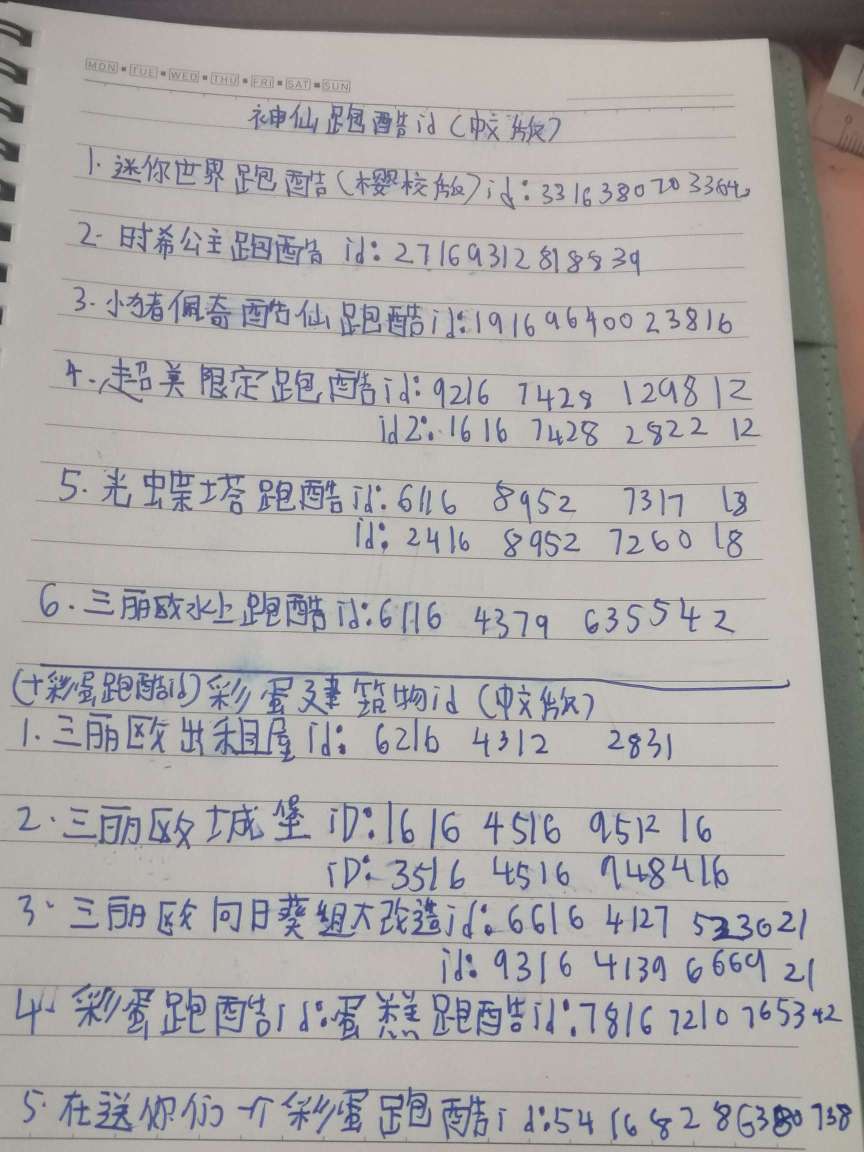 MON TUE WED THU FRI SAT SUN
神仙跑酷id(中文版)
1.迷你世界跑酷(樱校版)id:33163807033642
2.时希公主跑酷 id:27169312818839
3.小猪佩奇酷仙跑酷id:19169640023816
4.超美限定跑酷id:9216 7428 129812
id2:1616 7428 2822 12
5.光蝶塔跑酷id:6116 8952 7317 18
id:2416 8952 7260 18
6.三丽欧水上跑酷id:6116 4379 635542
(+彩蛋跑酷id)彩蛋建筑物id(中文版)
1.三丽欧出租屋id:6216 4312 2831
2.三丽欧城堡ID:1616 4516 9512 16
ID:3516 4516 948416
3.三丽欧向日葵组大改造id:6616 4127 533621
id:9316 4139 6669 21
4.彩蛋跑酷id:蛋糕跑酷id:7816 7210 765342
5.在送你们一个彩蛋跑酷id:5416 82 86380738